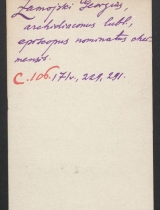 Zamojski Georgius,
archidiaconus lubl.,
episcopus nominatus chel-
mensis.
C. 106. 171v, 229, 291.